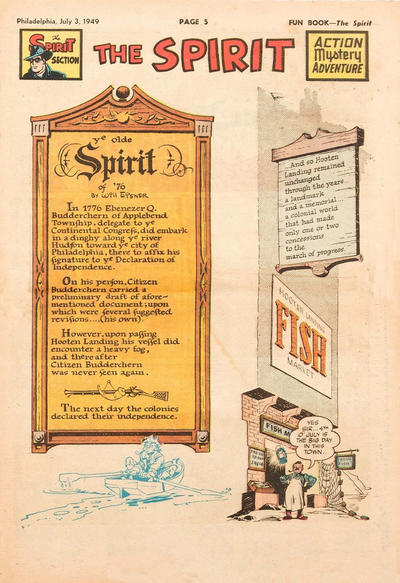 Philadelphia, July 3, 1949 PAGE 5 FUN BOOK—The Spirit
The
SPIRIT
SECTION
THE SPIRIT
ACTION
Mystery
ADVENTURE
ye olde
Spirit
of '76
BY
In 1776 Ebenezer Q.
Budderchern of Applebend
Township, delegate to ye
Continental Congreſs, did embark
in a dinghy along ye river
Hudſon toward ye city of
Philadelphia, there to affix his
ſignature to ye Declaration of
Independence.
On his perſon, Citizen
Budderchern carried a
preliminary draft of afore-
mentioned document, upon
which were ſeveral ſuggeſted
reviſions....(his own)
However, upon paſſing
Hooten Landing his veſſel did
encounter a heavy fog,
and thereafter
Citizen Budderchern
was never ſeen again.
The next day the colonies
declared their independence.
...And so Hooten
Landing remained
unchanged
through the years...
a landmark
and a memorial...
a colonial world
that had made
only one or two
concessions
to the
march of progress.
HOOTEN LANDING
FISH
MARKET
FISH
YES
SIR.. 4TH
O' JULY IS
THE BIG DAY
IN THIS
TOWN..